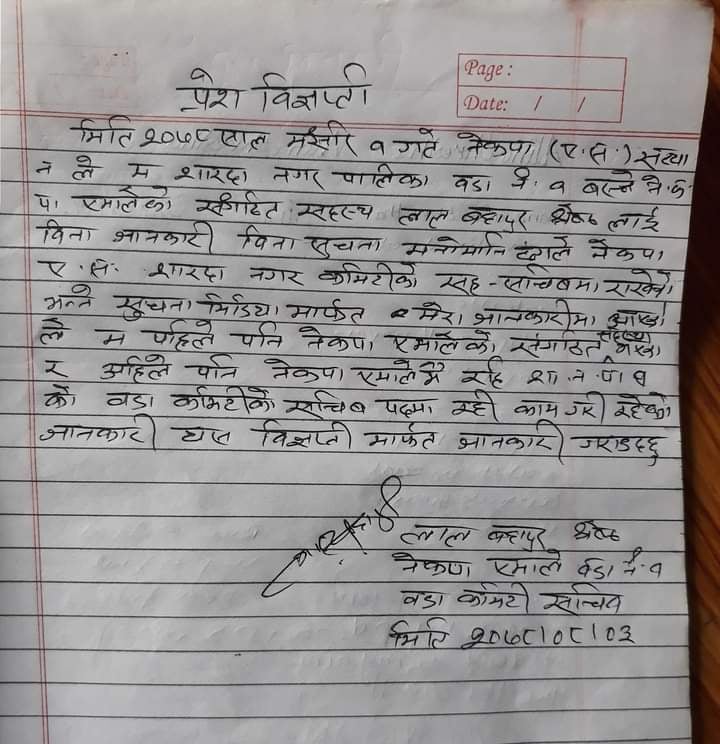 Page :
Date: / /
प्रेश विज्ञप्ती
मिति २०७८ साल मंसीर १ गते नेकपा (ए.स.) संस्था
न ले म शारदा नगर पालिका वडा नं. १ बस्ने ने.क.
पा एमालेको संगठित सदस्य लाल बहादुर श्रेष्ठ लाई
विना जानकारी विना सुचना मनोमानि ढंगले नेकपा
ए.स. शारदा नगर कमिटीको सह-सचिबमा राखेको
भन्ने सुचना मिडिया मार्फत मेरो जानकारीमा आएको
ले म पहिले पनि नेकपा एमालेको संगठित सदस्य भएको
र अहिले पनि नेकपा एमालेमै रहि शा.न.पा १
को वडा कमिटीको सचिब पदमा रही काम गरी रहेको
जानकारी यस विज्ञप्ती मार्फत जानकारी गराउदछु
लाल बहादुर श्रेष्ठ
नेकपा एमाले वडा नं. १
वडा कमिटी सचिव
मिति २०७८।०८।०३